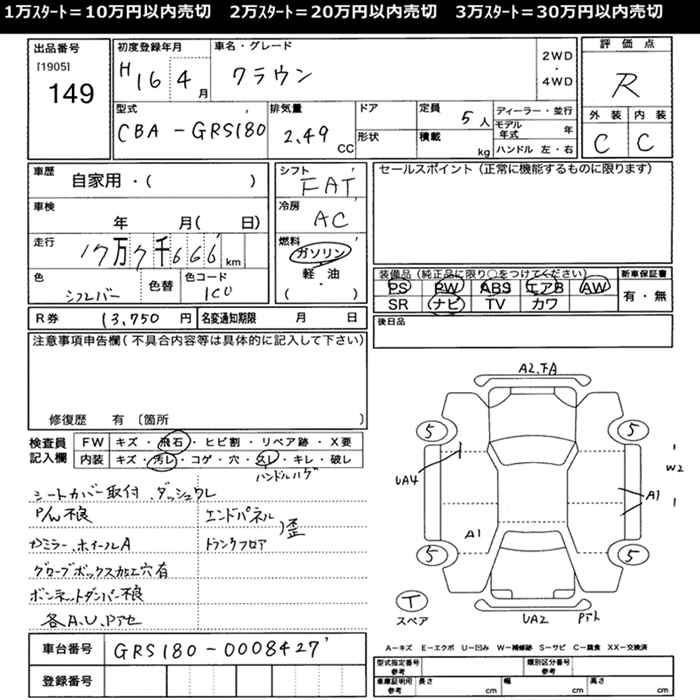 1万ｽﾀｰﾄ＝10万円以内売切　2万ｽﾀｰﾄ＝20万円以内売切　3万ｽﾀｰﾄ＝30万円以内売切
出品番号
[1905]
149
初度登録年月
H16 4月
車名・グレード
クラウン
2WD
・
4WD
評価点
R
外装 内装
C C
型式
CBA-GRS180
排気量
2.49 CC
ドア
形状
定員
5人
積載
kg
ディーラー・並行
モデル年式 年
ハンドル 左・右
車歴
自家用・( )
車検
年 月( 日)
走行
17万7千666 km
色
シルバー
色替
色コード
1C0
シフト
FAT
冷房
AC
燃料
ガソリン
軽・油
( )
セールスポイント（正常に機能するものに限ります）
装備品（純正品に限り○をつけてください）
PS PW ABS エアB AW
SR ナビ TV カワ
新車保証書
有・無
R券 13,750 円
名変通知期限 月 日
後日品
注意事項申告欄（不具合内容等は具体的に記入して下さい）
修復歴 有〔箇所
検査員記入欄
FW キズ・飛石・ヒビ割・リペア跡・X要
内装 キズ・汚レ・コゲ・穴・スレ・キレ・破レ
ハンドルハゲ
シートカバー取付 ダッシュワレ
P/W不良
エンドパネル
トランクフロア
歪
カミラー、ホイールA
グローブボックス加工穴有
ボンネットダンパー不良
各A.U.Pアセ
A2.FA
5
5
UA4
W2
A1
A1
5
5
T
スペア
UA2
Pアト
A＝キズ E＝エクボ U＝凹み W＝補修跡 S＝サビ C＝腐食 XX＝交換済
車台番号
GRS180-0008427
登録番号
型式指定番号 参考
類別区分番号 参考
車庫証明用 参考
長さ cm
幅 cm
高さ cm